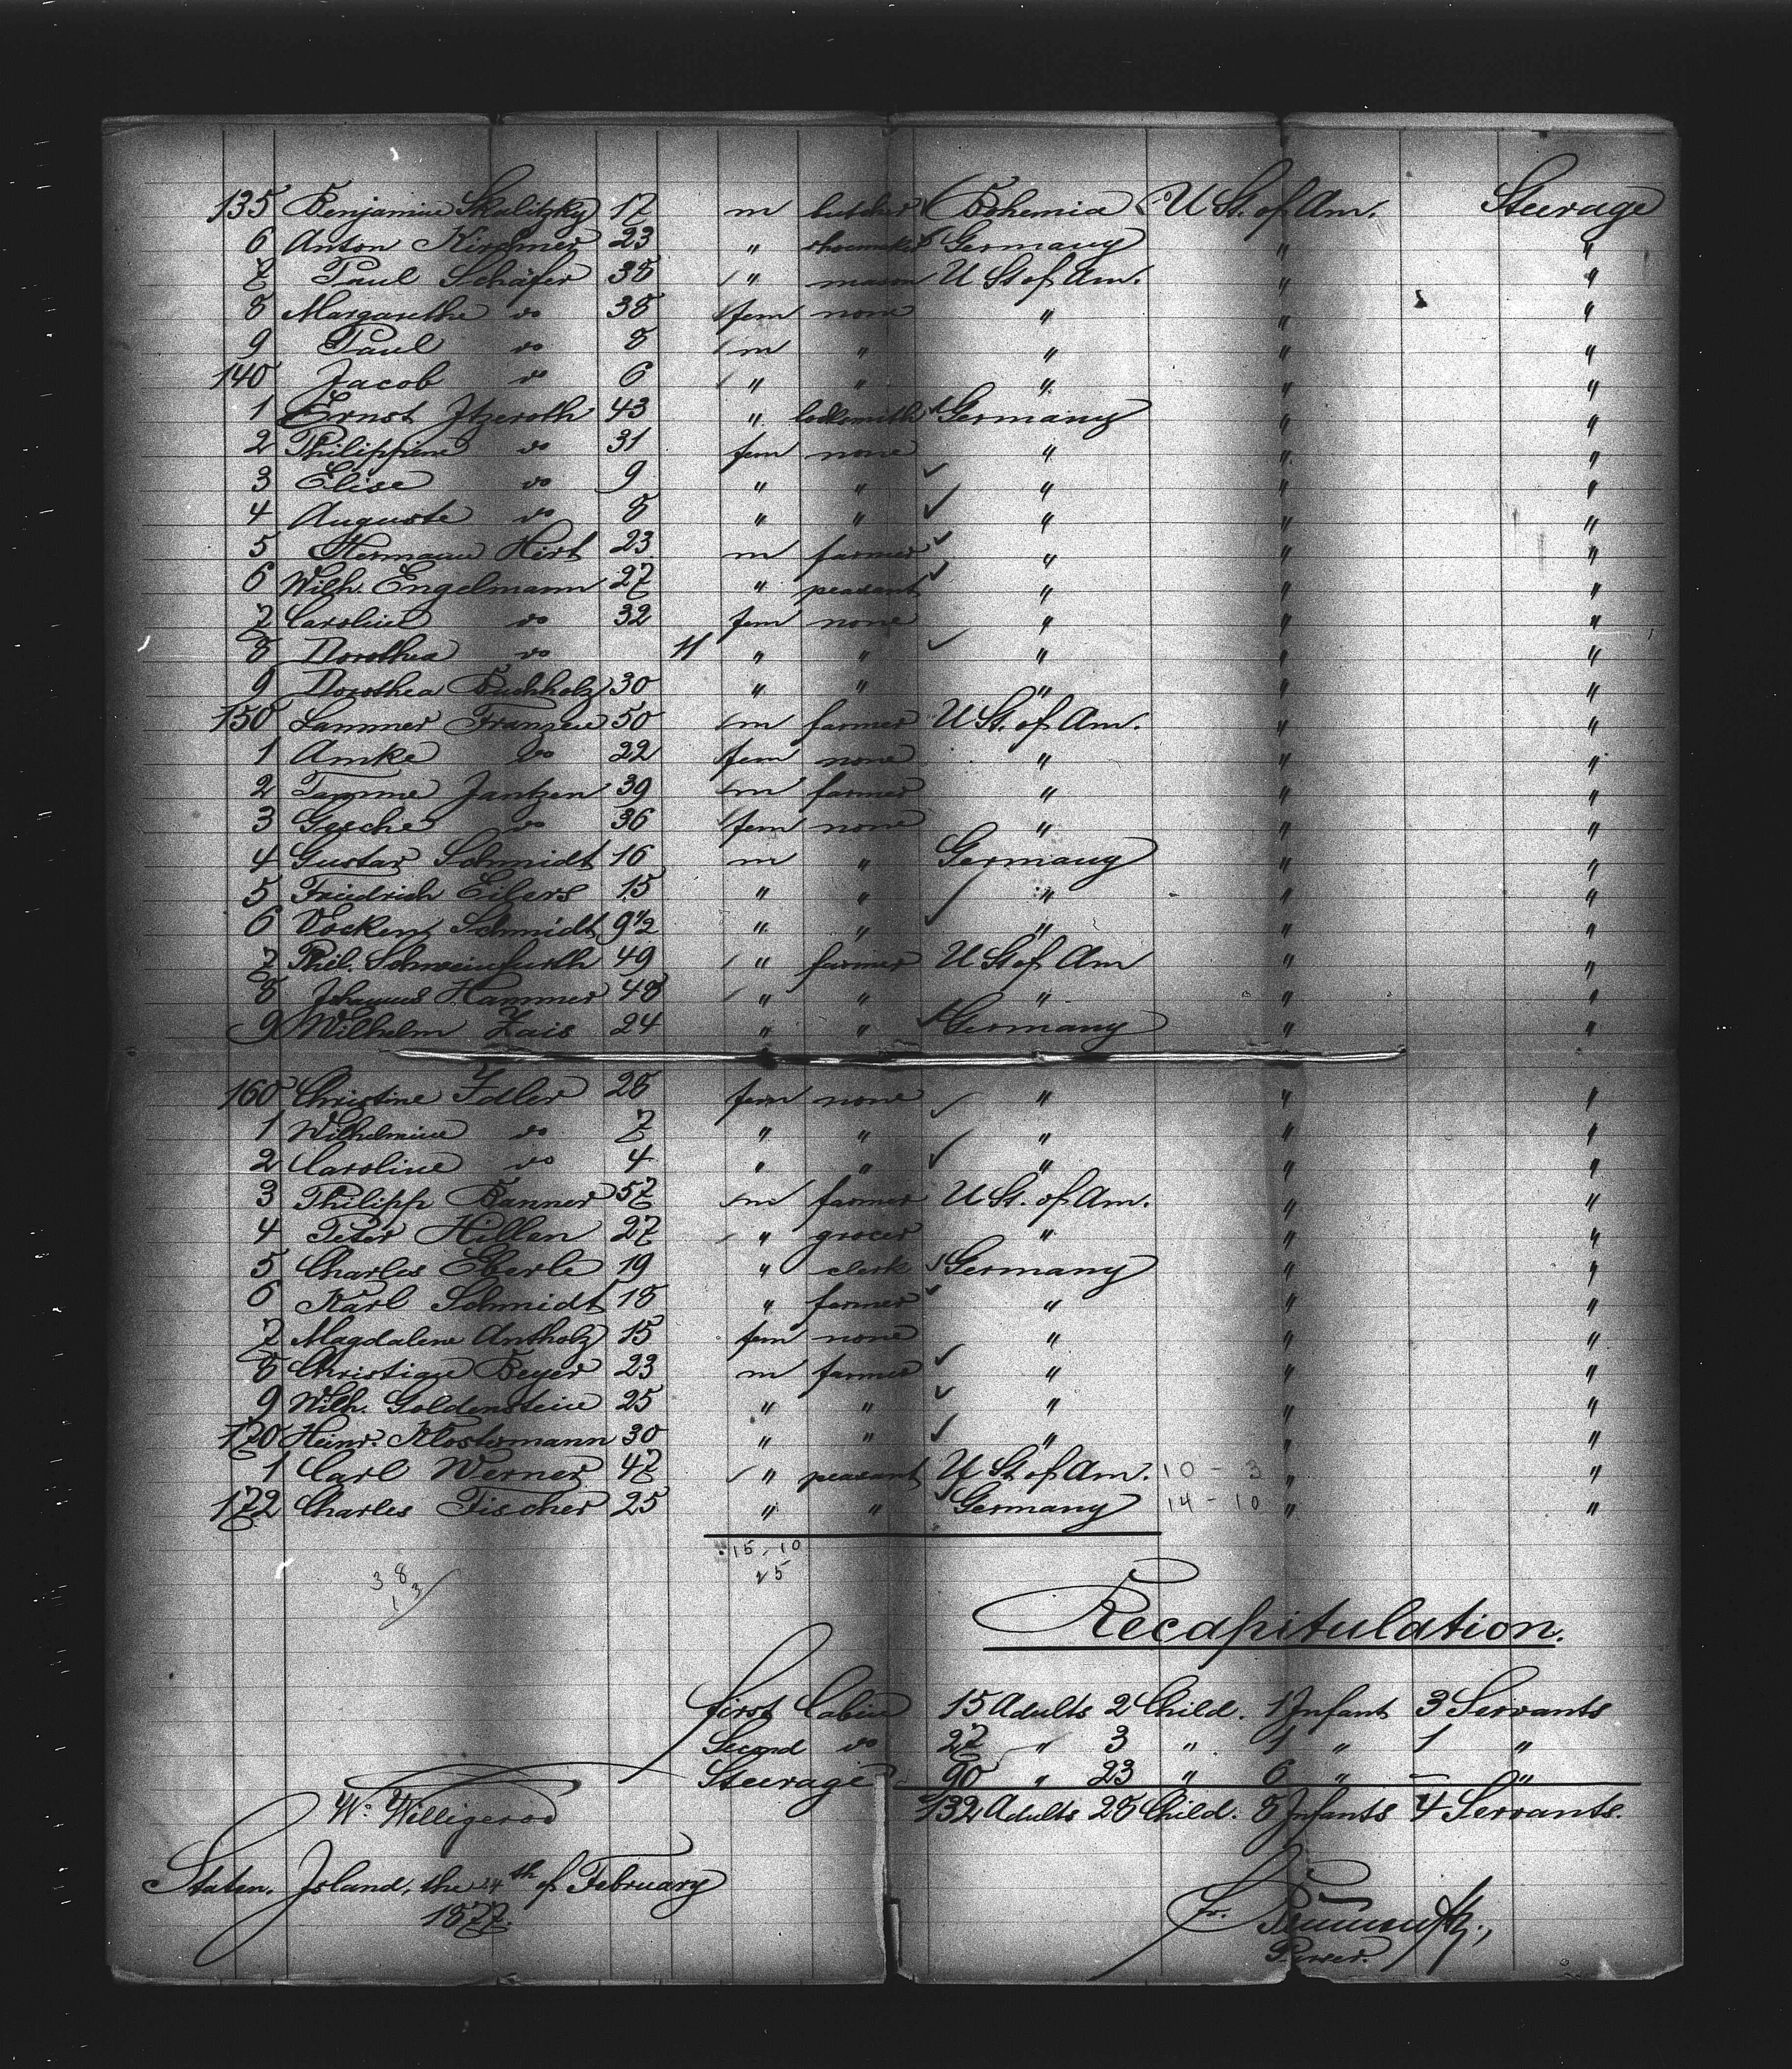 135 Benjamin Skalitzky 17 m butcher Bohemia U St. of Am. Steerage
6 Anton Kirchner 23 " shoemaker Germany " "
7 Paul Schäfer 35 " mason U St of Am. " "
8 Margarethe do 38 fem none " " "
9 Paul do 8 m " " " "
140 Jacob do 6 " " " " "
1 Ernst Itzeroth 43 " locksmith Germany " "
2 Philippine do 31 fem none " " "
3 Elise do 9 " " " " "
4 Auguste do 8 " " " " "
5 Hermann Hirt 23 m farmer " " "
6 Wilh. Engelmann 27 " peasant " " "
7 Caroline do 32 fem none " " "
8 Dorothea do 11 " " " " "
9 Dorothea Buchholz 30 " " " " "
150 Lammer Franzen 50 m farmer U St. of Am. " "
1 Amke do 22 fem none " " "
2 Tamme Jantzen 39 m farmer " " "
3 Gesche do 36 fem none " " "
4 Gustav Schmidt 16 m " Germany " "
5 Friedrich Eilers 15 " " " " "
6 Vocken Schmidt 9 1/2 " " " " "
7 Phil. Schweinfurth 49 " farmer U St of Am " "
8 Johannes Hammer 48 " " " " "
9 Wilhelm Zais 24 " " Germany " "
160 Christine Idler 28 fem none " " "
1 Wilhelmine do 7 " " " " "
2 Caroline do 4 " " " " "
3 Philipp Banner 57 m farmer U St. of Am. " "
4 Peter Hillen 27 " grocer " " "
5 Charles Eberle 19 " clerk Germany " "
6 Karl Schmidt 18 " farmer " " "
7 Magdalene Antholz 15 fem none " " "
8 Christian Beyer 23 m farmer " " "
9 Wilh. Goldenstein 25 " " " " "
170 Heinr. Klostermann 30 " " " " "
1 Carl Werner 47 " peasant U St of Am. 10 - 3 " "
172 Charles Fischer 25 " " Germany 14 - 10 " "
15, 10
25
38
13
Recapitulation.
First Cabin 15 Adults 2 Child. 1 Infant 3 Servants
Second do 27 " 3 " 1 " 1 "
Steerage 90 " 23 " 6 " — "
132 Adults 28 Child. 8 Infants 4 Servants.
W. Willigerod
Staten Island, the 24th of February
1877.
Purser.